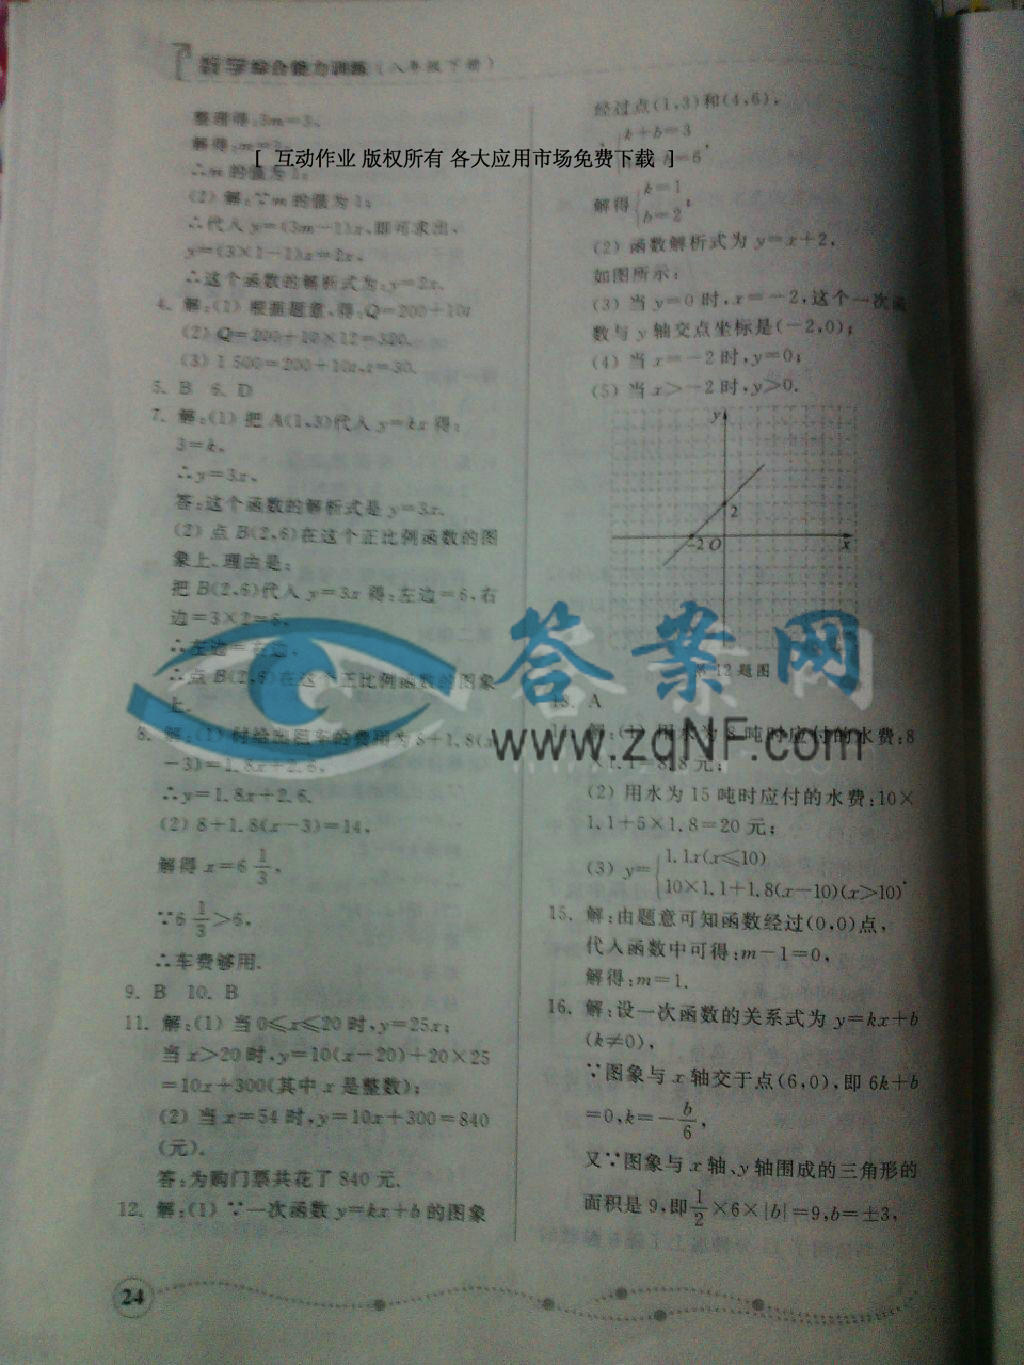 数学综合能力训练(八年级下册)
整理得:3m=3,
解得:m=1,
∴m的值为1;
(2)解:∵m的值为1;
∴代入 y=(3m-1)x,即可求出,
y=(3×1-1)x=2x,
∴这个函数的解析式为:y=2x.
4. 解:(1)根据题意,得:Q=200+10t
(2)Q=200+10×12=320.
(3)1 500=200+10t,t=30.
5. B 6. D
7. 解:(1)把A(1,3)代入 y=kx 得:
3=k,
∴y=3x,
答:这个函数的解析式是 y=3x.
(2)点B(2,6)在这个正比例函数的图
象上,理由是:
把B(2,6)代入 y=3x 得:左边=6,右
边=3×2=6,
∴左边=右边,
∴点B(2,6)在这个正比例函数的图象
上.
8. 解:(1)付给出租车的费用为8+1.8(x
-3)=1.8x+2.6,
∴y=1.8x+2.6.
(2)8+1.8(x-3)=14,
解得 x=6 1/3,
∵6 1/3>6,
∴车费够用.
9. B 10. B
11. 解:(1)当0≤x≤20时,y=25x;
当x>20时,y=10(x-20)+20×25
=10x+300(其中x是整数);
(2)当x=54时,y=10x+300=840
(元).
答:为购门票共花了840元.
12. 解:(1)∵一次函数 y=kx+b的图象
24
经过点(1,3)和(4,6),
k+b=3
b=6
解得{k=1
b=2;
(2)函数解析式为 y=x+2,
如图所示:
(3)当 y=0 时,x=-2,这个一次函
数与 y 轴交点坐标是(-2,0);
(4)当 x=-2 时,y=0;
(5)当 x>-2 时,y>0.
y
2
-2 O x
第12题图
13. A
解:(1)用水为8吨时应付的水费:8
×1.1=8.8元;
(2)用水为15吨时应付的水费:10×
1.1+5×1.8=20元;
(3)y={1.1x(x≤10)
10×1.1+1.8(x-10)(x>10).
15. 解:由题意可知函数经过(0,0)点,
代入函数中可得:m-1=0,
解得:m=1.
16. 解:设一次函数的关系式为 y=kx+b
(k≠0),
∵图象与 x 轴交于点(6,0),即 6k+b
=0,k=-b/6,
又∵图象与 x 轴、y 轴围成的三角形的
面积是9,即1/2×6×|b|=9,b=±3,
[ 互动作业 版权所有 各大应用市场免费下载 ]
答案网
www.zqNF.com